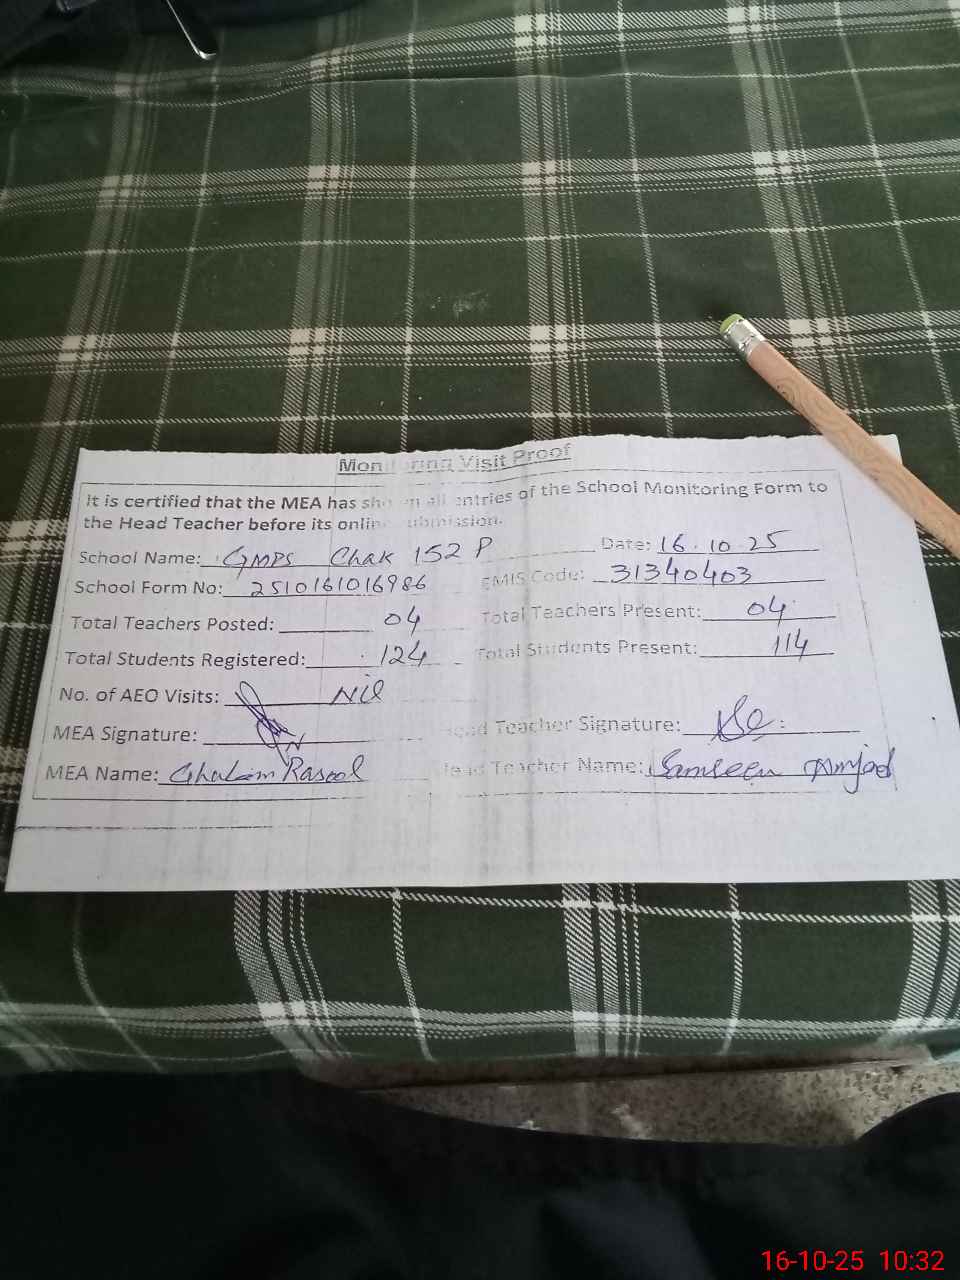 Monitoring Visit Proof
It is certified that the MEA has shown all entries of the School Monitoring Form to
the Head Teacher before its online submission.
School Name: GMPS Chak 152 P Date: 16.10.25
School Form No: 2510161016986 EMIS Code: 31340403
Total Teachers Posted: 04 Total Teachers Present: 04
Total Students Registered: 124 Total Students Present: 114
No. of AEO Visits: Nil
MEA Signature: Head Teacher Signature:
MEA Name: Ghulam Rasool Head Teacher Name: Amjad
16-10-25 10:32